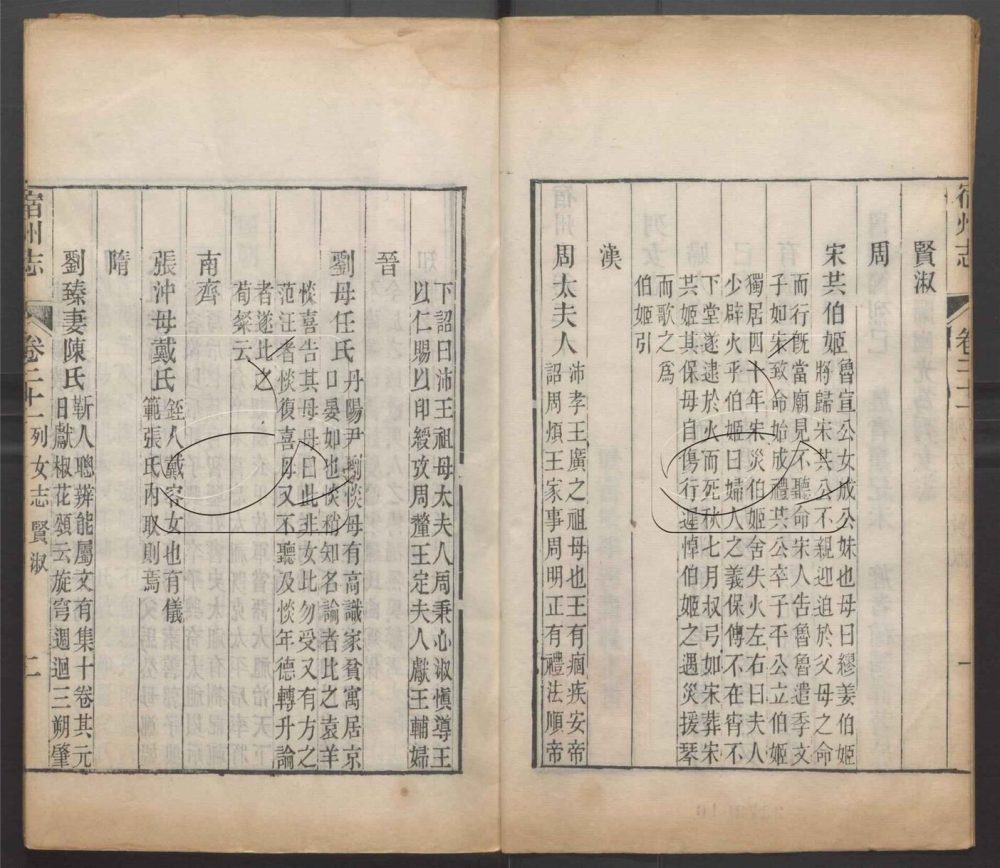 宿州志 卷二十一 一
賢淑
周
宋共伯姬 魯宣公女成公妹也母曰繆姜伯姬
將歸宋共公不親迎迫於父母之命
而行旣當廟見不聽命宋人告魯魯遣季文
子如宋致命始成禮共公卒子平公立伯姬
獨居四十年宋災伯姬舍失火左右曰夫人
少辟火乎伯姬曰婦人之義保傅不在宵不
下堂遂逮於火而死秋七月叔弓如宋葬宋
共姬其保毋自傷行遲悼伯姬之遇災援琴
而歌之爲
伯姬引
漢
周太夫人 沛孝王廣之祖母也王有痼疾安帝
詔周煩王家事周明正有禮法順帝
下詔曰沛王祖母太夫人周秉心淑愼導王
以仁賜以印綬妏周釐王定夫人獻王輔婦
晉
劉母任氏 丹陽尹劉惔母有高識家貧寓居京
口晏如也惔稍知名論者比之袁羊
惔喜告其母母曰此非女比勿受又有方之
范汪者惔復喜母又不聽及惔年德轉升論
者遂比之
荀粲云
南齊
張沖母戴氏 銍人戴容女也有儀
範張氏內取則焉
隋
劉臻妻陳氏 靳人聰辨能屬文有集十卷其元
日獻椒花頌云旋穹週迴三朔肇
宿州志 卷二十一 列女志 賢淑 二